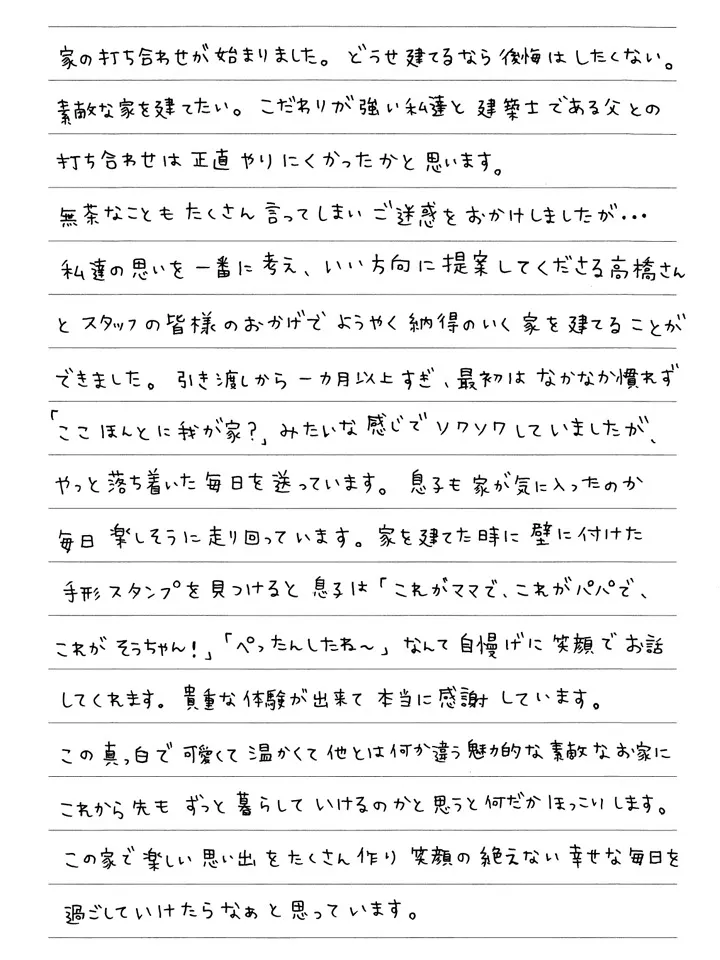 家の打ち合わせが始まりました。どうせ建てるなら後悔はしたくない。
素敵な家を建てたい。こだわりが強い私達と建築士である父との
打ち合わせは正直やりにくかったかと思います。
無茶なこともたくさん言ってしまいご迷惑をおかけしましたが・・・
私達の思いを一番に考え、いい方向に提案してくださる高橋さん
とスタッフの皆様のおかげでようやく納得のいく家を建てることが
できました。引き渡しから一カ月以上すぎ、最初はなかなか慣れず
「ここほんとに我が家？」みたいな感じでソワソワしていましたが、
やっと落ち着いた毎日を送っています。息子も家が気に入ったのか
毎日楽しそうに走り回っています。家を建てた時に壁に付けた
手形スタンプを見つけると息子は「これがママで、これがパパで、
これがそうちゃん！」「ぺったんしたね〜」なんて自慢げに笑顔でお話
してくれます。貴重な体験が出来て本当に感謝しています。
この真っ白で可愛くて温かくて他とは何か違う魅力的な素敵なお家に
これから先もずっと暮らしていけるのかと思うと何だかほっこりします。
この家で楽しい思い出をたくさん作り笑顔の絶えない幸せな毎日を
過ごしていけたらなぁと思っています。